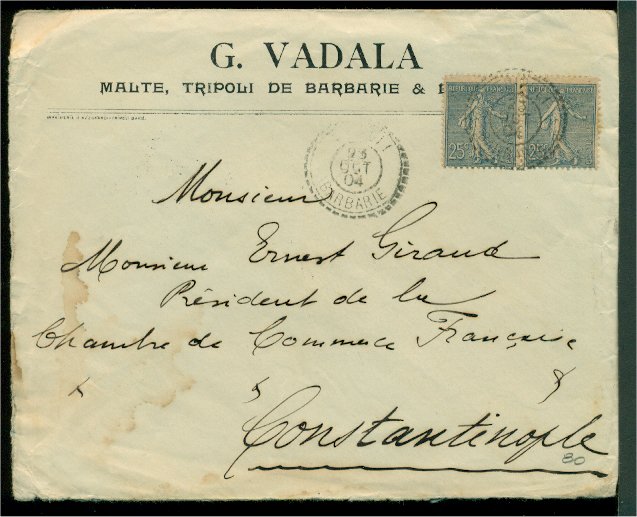 G. VADALA
MALTE, TRIPOLI DE BARBARIE &
REPUBLIQUE FRANÇAISE
25c
25c
23
OCT
04
BARBARIE
Monsieur
Monsieur Ernest Giraud
Président de la
Chambre de Commerce Française
Constantinople
80